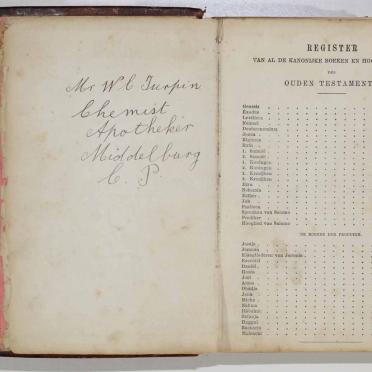 Mr W C Turpin
Chemist
Apotheker
Middelburg
C. P
REGISTER
VAN AL DE KANONIJKE BOEKEN EN
DES
OUDEN TESTAMENT
Genesis
Exodus
Leviticus
Numeri
Deuteronomium
Jozua
Rigteren
Ruth
1. Samuel
2. Samuel
1. Koningen
2. Koningen
1. Kronijken
2. Kronijken
Ezra
Nehemia
Esther
Job
Psalmen
Spreuken van Salomo
Prediker
Hooglied van Salomo
DE BOEKEN DER PROFETEN.
Jesaja
Jeremia
Klaagliederen van Jeremia
Ezechiël
Daniël
Hosea
Joël
Amos
Obadja
Jona
Micha
Nahum
Habakuk
Zefanja
Haggaï
Zacharia
Maleachi